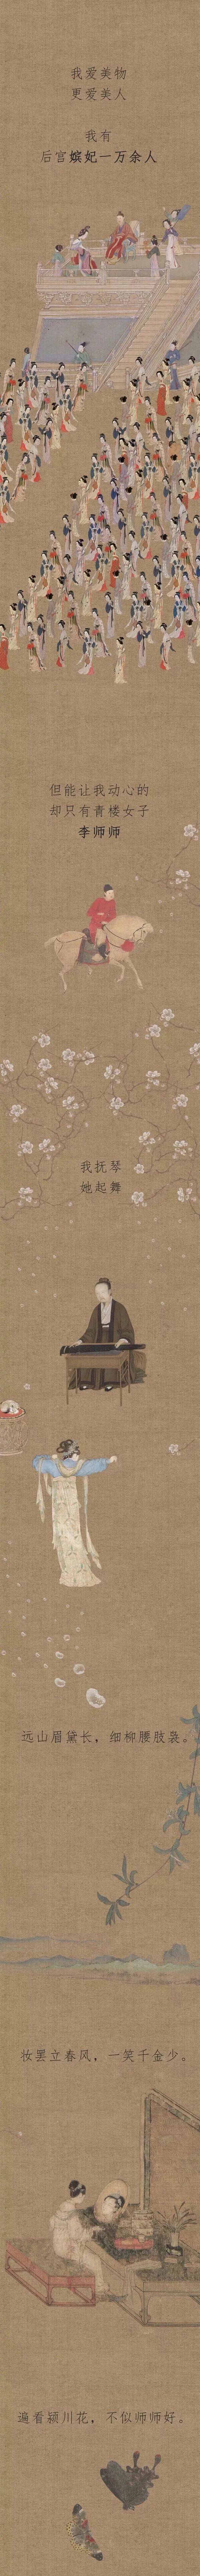 我爱美物
更爱美人
我有
后宫嫔妃一万余人
但能让我动心的
却只有青楼女子
李师师
我抚琴
她起舞
远山眉黛长，细柳腰肢袅。
妆罢立春风，一笑千金少。
遍看颍川花，不似师师好。